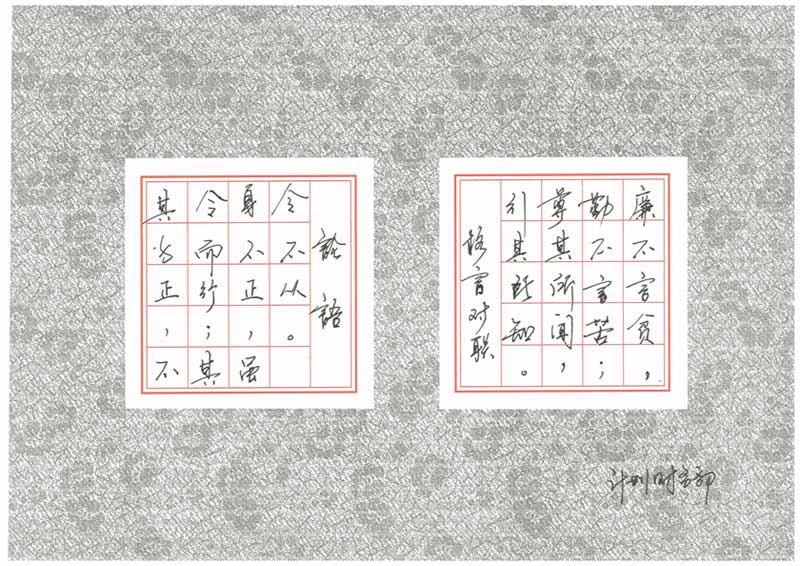 廉不言贫，
勤不言苦；
尊其所闻，
行其所知。
格言对联
其身正，不
令而行；其
身不正，虽
令不从。
論語
计划财务部